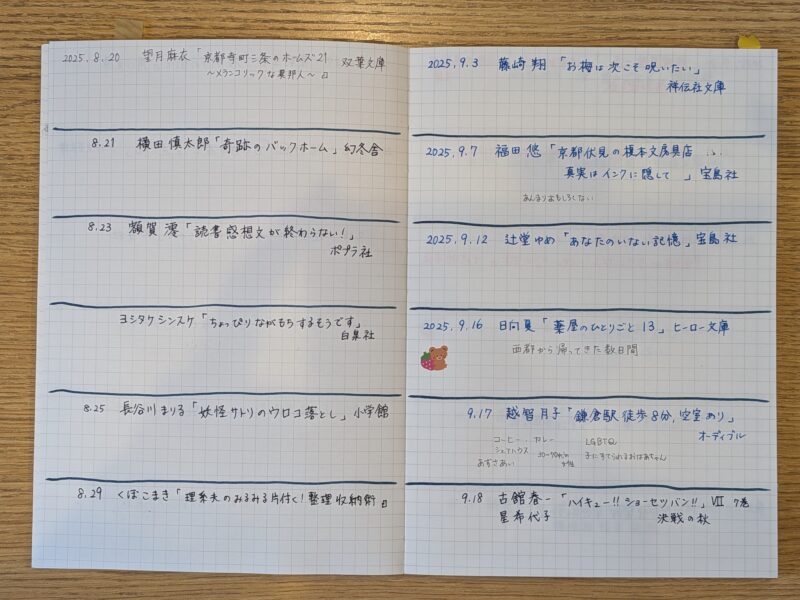 2025.8.20 望月麻衣「京都寺町三条のホームズ21 双葉文庫
〜メランコリックな異邦人〜
8.21 横田慎太郎「奇跡のバックホーム」幻冬舎
8.23 額賀澪「読書感想文が終わらない!」
ポプラ社
ヨシタケシンスケ「ちょっぴりながもちするそうです」
白泉社
8.25 長谷川まりる「妖怪サトリのウロコ落とし」小学館
8.29 くぼこまき「理系夫のみるみる片付く!整理収納術
2025.9.3 藤崎翔 「お梅は次こそ呪いたい」
祥伝社文庫
2025.9.7 福田悠「京都伏見の榎本文房具店
真実はインクに隠して 」宝島社
あんまりおもしろくない
2025.9.12 辻堂ゆめ「あなたのいない記憶」宝島社
2025.9.16 日向夏「薬屋のひとりごと13」ヒーロー文庫
西都から帰ってきた数日間
9.17 越智月子「鎌倉駅徒歩8分,空室あり」
オーディブル
コーヒー、カレー LGBTQ
シェアハウス 女性 子にすてられるおばあちゃん
あずさあい
9.18 古館春一「ハイキュー!!ショーセツバン!!」Ⅶ 7巻
星希代子 決戦の秋